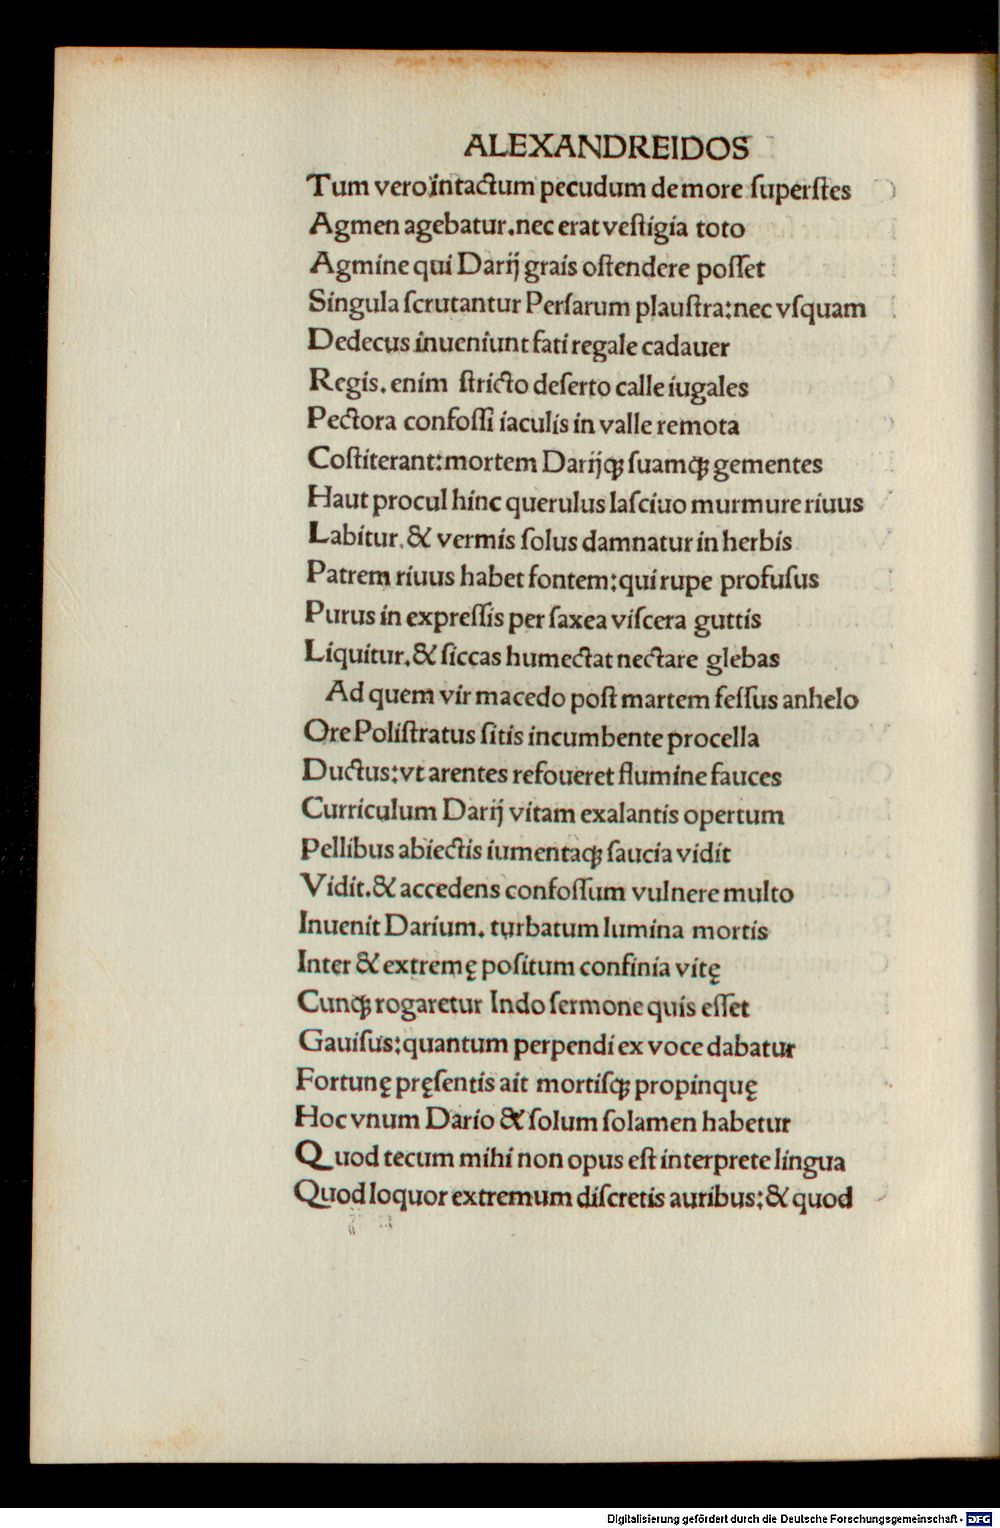 ALEXANDREIDOS
Tum vero intactum pecudum de more ſuperſtes
Agmen agebatur. nec erat veſtigia toto
Agmine qui Darij grais oſtendere poſſet
Singula ſcrutantur Perſarum plauſtra: nec vſquam
Dedecus inueniunt fati regale cadauer
Regis. enim ſtricto deſerto calle iugales
Pectora confoſſi iaculis in valle remota
Coſtiterant: mortem Darijqꝫ ſuamqꝫ gementes
Haut procul hinc querulus laſciuo murmure riuus
Labitur. & vermis ſolus damnatur in herbis
Patrem riuus habet fontem: qui rupe profuſus
Purus in expreſſis per ſaxea viſcera guttis
Liquitur. & ſiccas humectat nectare glebas
Ad quem vir macedo poſt martem feſſus anhelo
Ore Poliſtratus ſitis incumbente procella
Ductus: vt arentes refoueret flumine fauces
Curriculum Darij vitam exalantis opertum
Pellibus abiectis iumentaqꝫ ſaucia vidit
Vidit. & accedens confoſſum vulnere multo
Inuenit Darium. turbatum lumina mortis
Inter & extremę poſitum confinia vitę
Cunqꝫ rogaretur Indo ſermone quis eſſet
Gauiſus: quantum perpendi ex voce dabatur
Fortunę pręſentis ait mortiſqꝫ propinquę
Hoc vnum Dario & ſolum ſolamen habetur
Quod tecum mihi non opus eſt interprete lingua
Quod loquor extremum diſcretis auribus: & quod
Digitalisierung gefördert durch die Deutsche Forschungsgemeinschaft - DFG